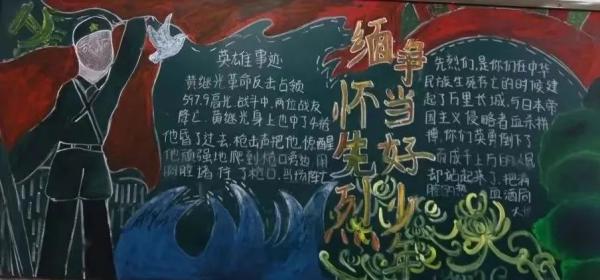 英雄事迹
黄继光革命反击占领
597.9高地战斗中,两位战友
牺牲 黄继光身上也中了4枪
他昏了过去,枪击声把他惊醒
他顽强地爬到枪口旁边用
胸膛堵住了枪口,当场阵亡
缅怀先烈
争当好少年
先烈们,是你们在中华
民族生死存亡的时候,建
起了万里长城,与日本帝
国主义侵略者血杀拼
搏,你们英勇倒下了
成千上万的人
却站起来了,把满
腔的热血洒向
大地